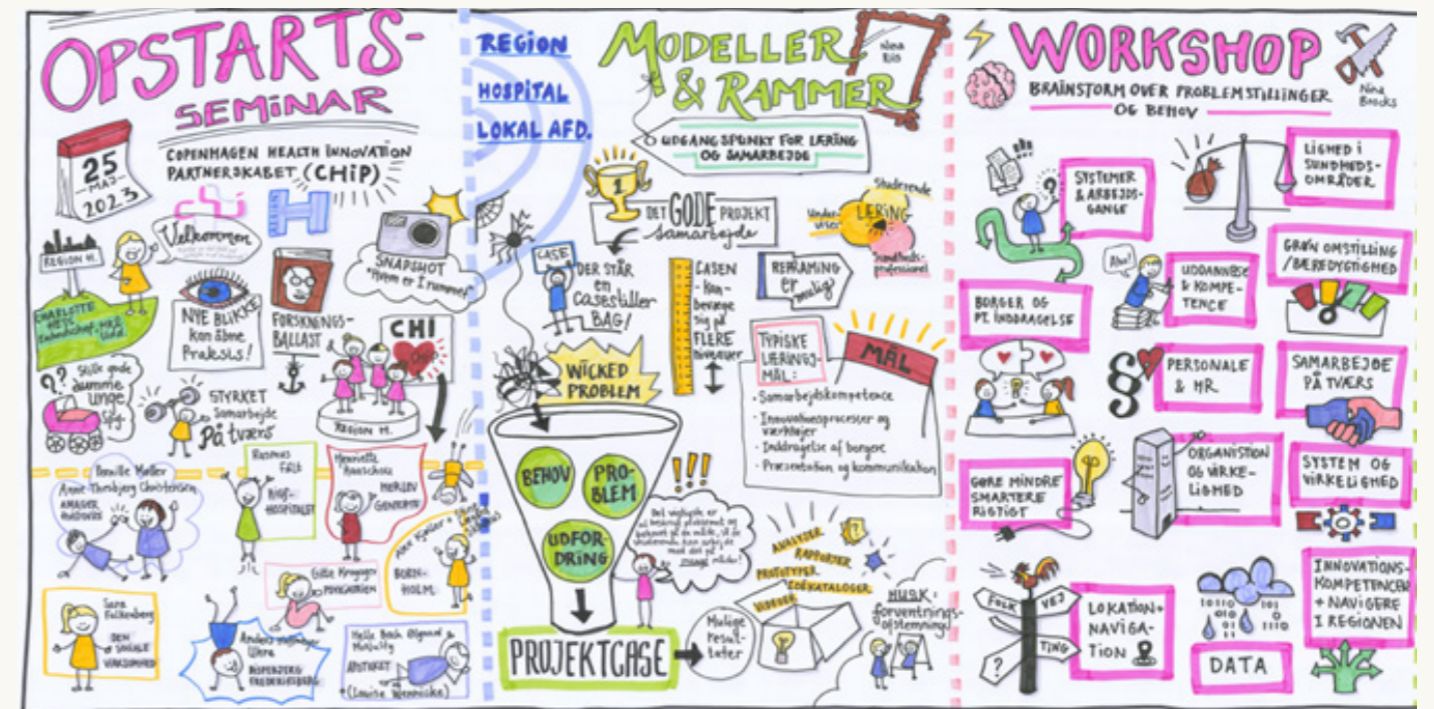 OPSTARTS-
SEMINAR
25
MAJ
2023
COPENHAGEN HEALTH INNOVATION
PARTNERSKABET (CHiP)
REGION H
Velkommen
REGION H.
SNAPSHOT
"Hvem er I rummet"
CHARLOTTE
HESS
NYE BLIKKE
kan åbne
Praksis!
FORSKNINGS-
BALLAST
CHI
REGION H.
??
Stille gode
dumme
unge
spg.
STYRKET
Samarbejde
På tværs
Pernille Møller
Anne Thorsbjerg Christensen
AMAGER
HVIDOVRE
Rasmus
Felt
RIGS-
HOSPITALET
Henriette
Raaschou
HERLEV
GENTOFTE
BORN-
HOLM
Gitte
PSYKIATRIEN
Sara
Falkenberg
DEN
SOCIALE
VIRKSOMHED
Anders
BISPEBJERG
FREDERIKSBERG
Helle Bach Ølgaard
APOTEKET
+(Louise Wenniske)
REGION
HOSPITAL
LOKAL AFD.
MODELLER
& RAMMER
Nina
Riis
UDGANGSPUNKT FOR LÆRING
OG SAMARBEJDE
1
DET GODE PROJEKT
Samarbejde
Studerende
Under-
viser
LÆRING
Sundheds-
professionel
CASE
DER STÅR
en
Casestiller
BAG!
CASEN
- kan
bevæge
sig på
FLERE
niveauer
REFRAMING
er
mulig
WICKED
PROBLEM
TYPISKE
LÆRINGS-
MÅL:
MÅL
· Samarbejdskompetence
· Innovationsprocesser og
værktøjer
· Inddragelse af borgere
· Præsentation og kommunikation
BEHOV
PRO-
BLEM
UDFOR-
DRING
!!!
Det vigtigste er
at beskrive problemet og
behovet på en måde, så de
studerende kan arbejde
med det på
mange måder!
PROJEKTCASE
Mulige
resul-
tater
ANALYSER
RAPPORTER
PROTOTYPER
IDEKATALOGER
VIDEOER
?
HUSK:
forventnings-
afstemning
WORKSHOP
BRAINSTORM OVER PROBLEMSTILLINGER
OG BEHOV
Nina
Brocks
?
SYSTEMER
& ARBEJDS-
GANGE
LIGHED I
SUNDHEDS-
OMRÅDER
BORGER OG
PT. INDDRAGELSE
Aha!
UDDANNELSE
& KOMPE-
TENCE
GRØN OMSTILLING
/BÆREDYGTIGHED
§
PERSONALE
& HR
SAMARBEJDE
PÅ TVÆRS
GØRE MINDRE
SMARTERE
RIGTIGT
ORGANISTION
OG VIRKE-
LIGHED
SYSTEM OG
VIRKELIGHED
FOLK
VEJ
TING
?
LOKATION+
NAVIGA-
TION
DATA
INNOVATIONS-
KOMPETENCER
+ NAVIGERE
I REGIONEN